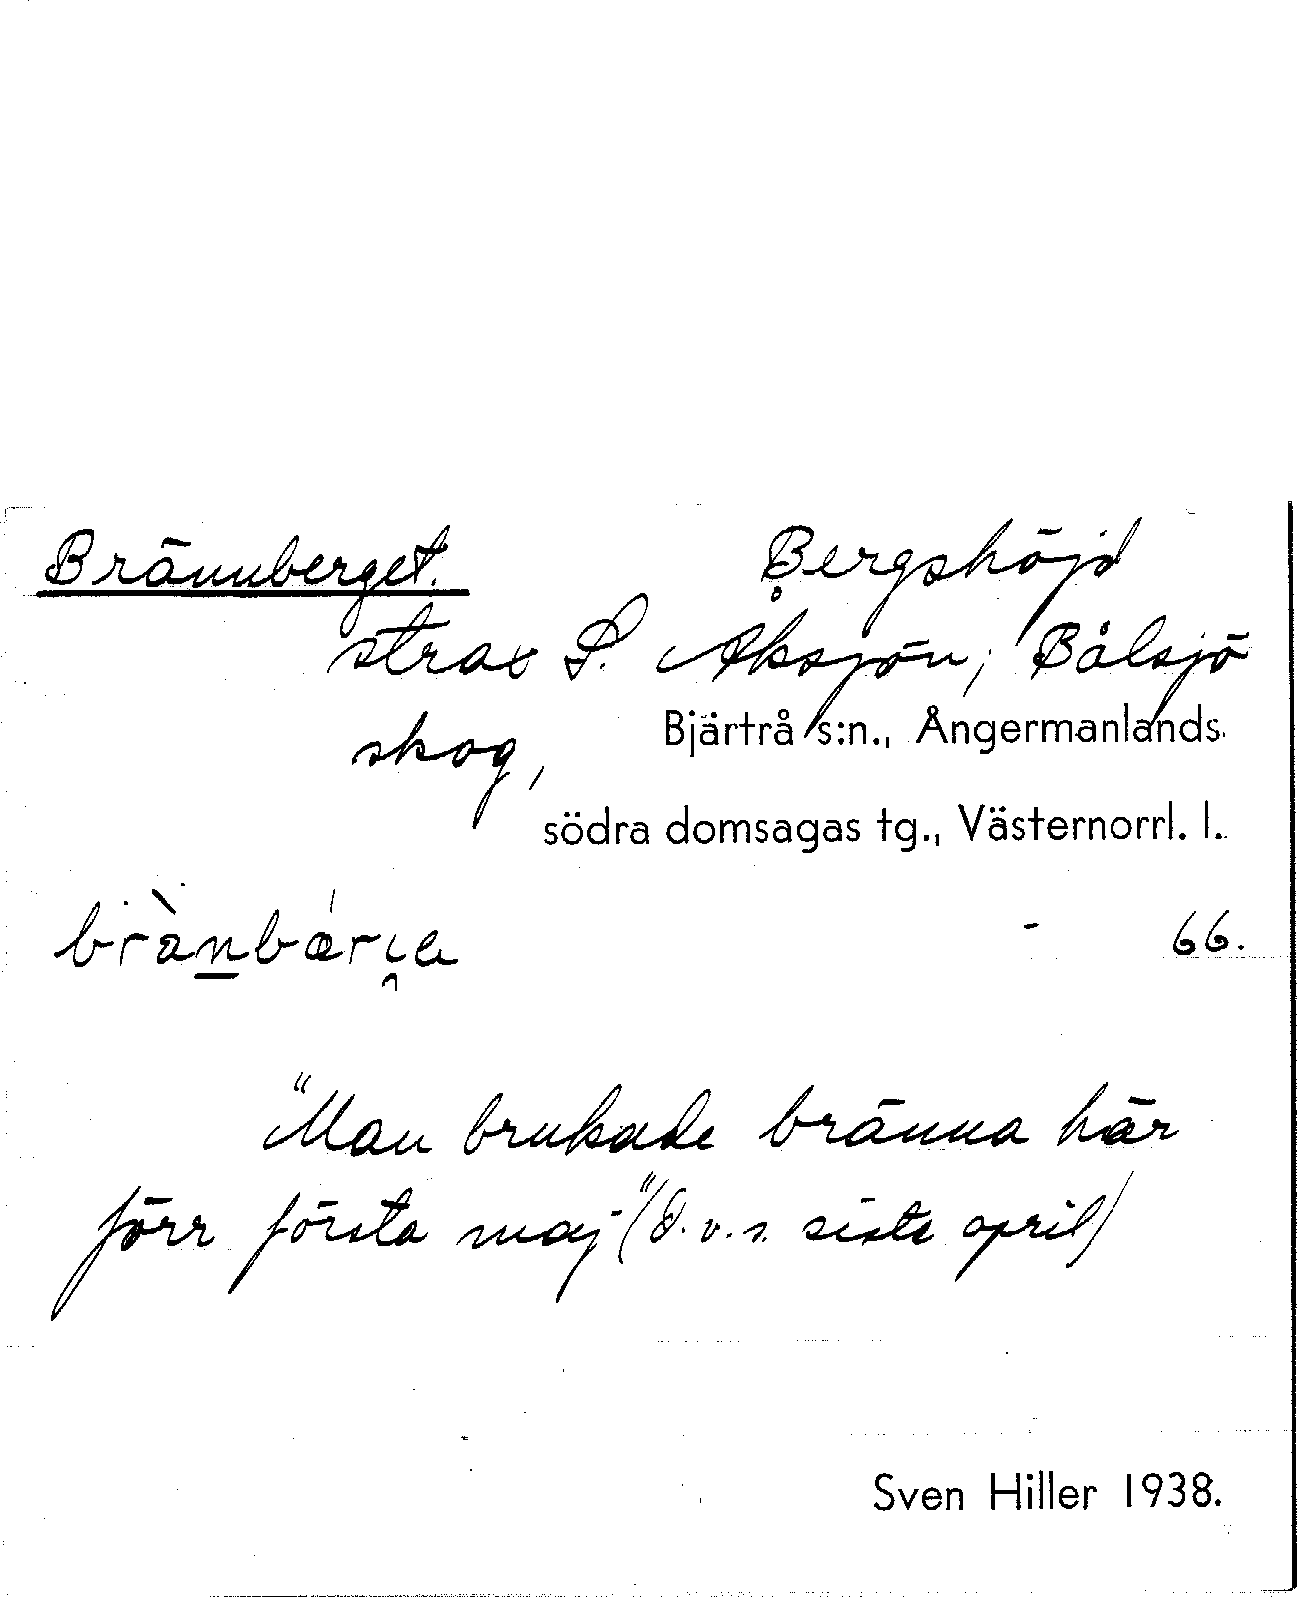 Brännberget. Bergshöjd
strax S. Aksjön, Bålsjö
skog, Bjärtrå s:n., Ångermanlands
södra domsagas tg., Västernorrl. l.
- 66.
"Man brukade bränna här
förr första maj" (d.v.s. sista april)
Sven Hiller 1938.